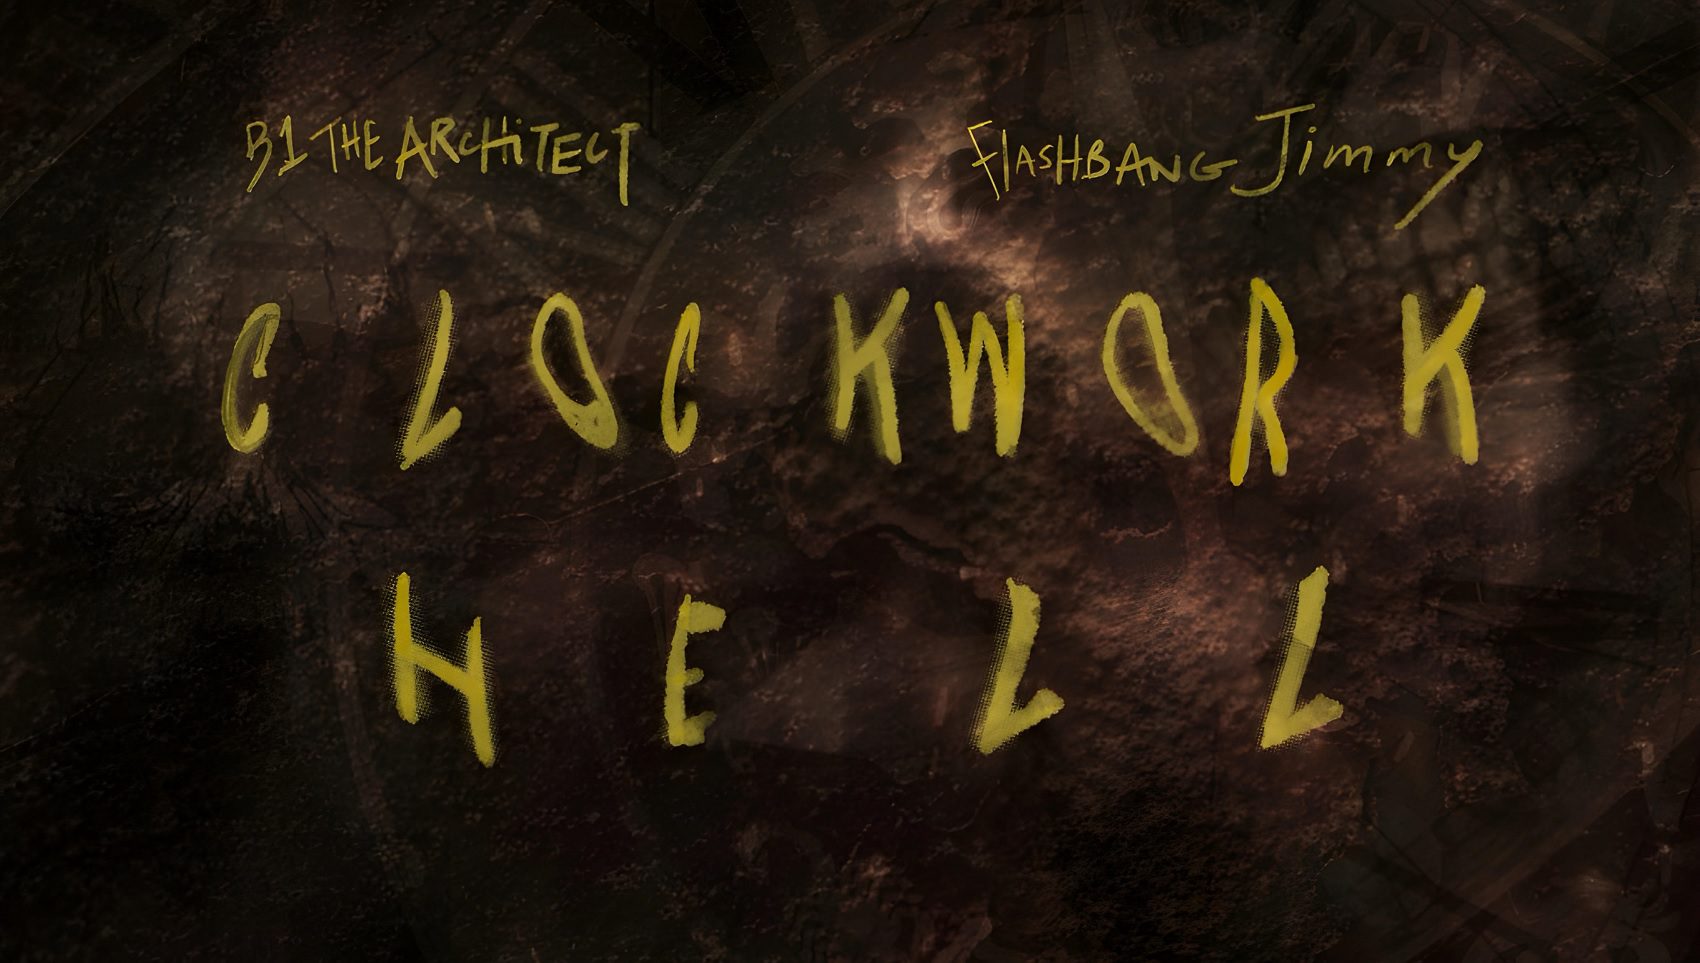 B1 THE ARCHiTECT
FlASHBANG Jimmy
CLOCKWORK
HELL